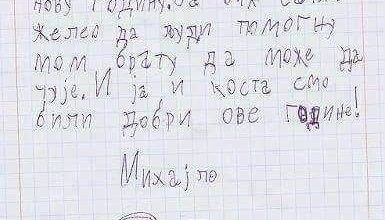 нову годину. Ја бих само
желео да људи помогну
мом брату да може да
чује. И ја и Коста смо
били добри ове године!
Михајло